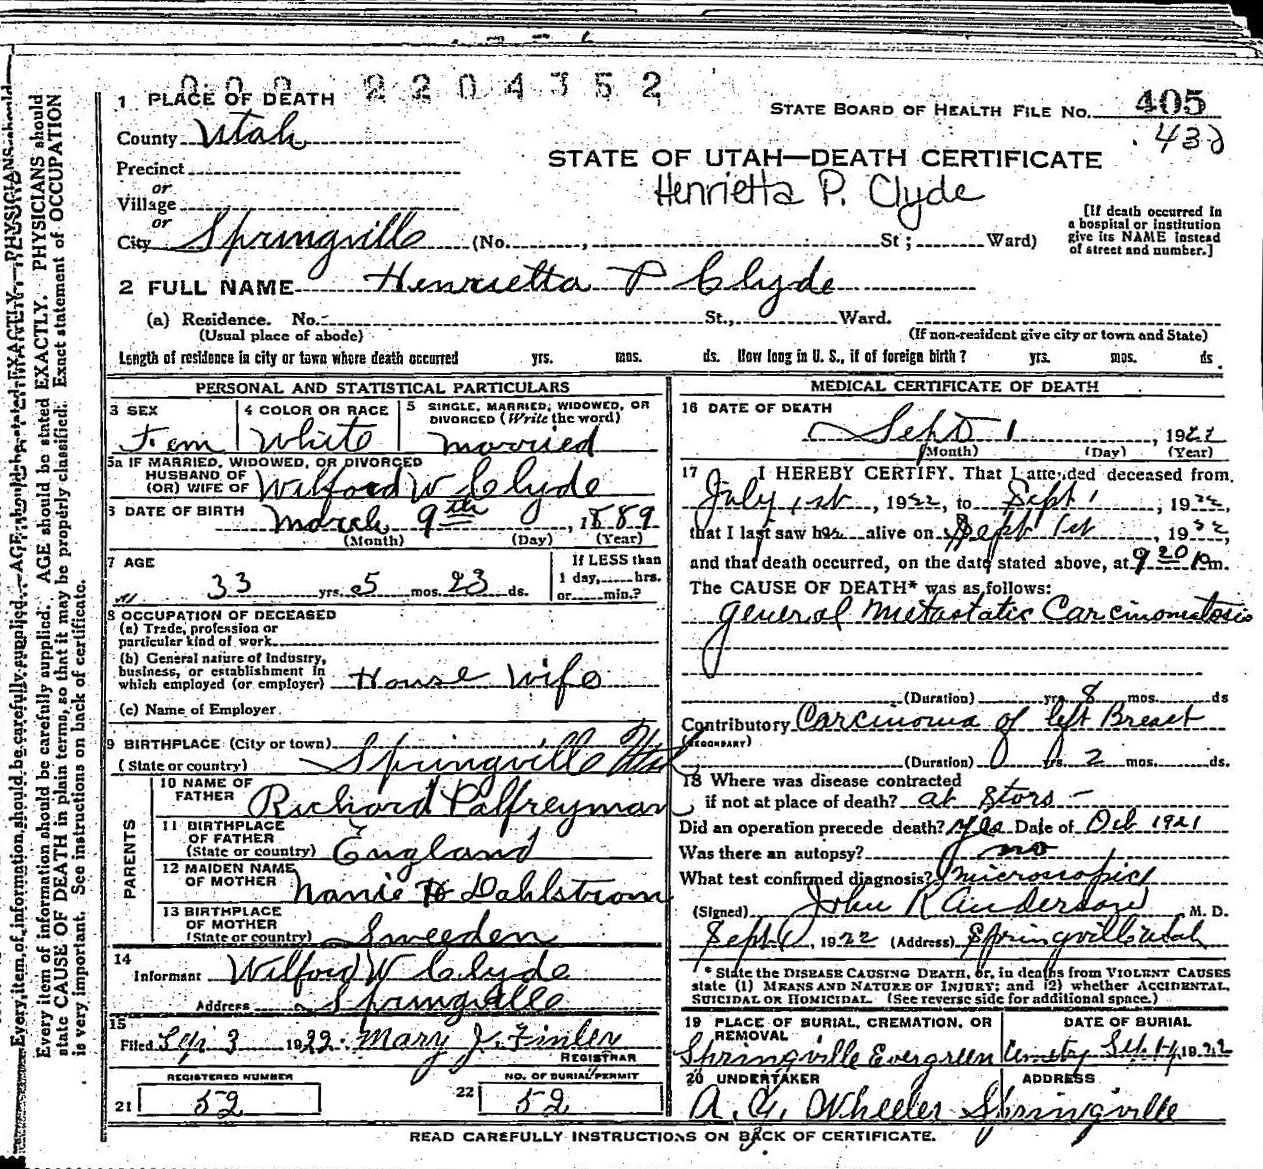 000 2204352
1 PLACE OF DEATH
STATE BOARD OF HEALTH FILE No. 405
County Utah
432
STATE OF UTAH—DEATH CERTIFICATE
Precinct
or
Village
Henrietta P. Clyde
or
City Springville (No. , St ; Ward)
[If death occurred in
a hospital or institution
give its NAME instead
of street and number.]
2 FULL NAME Henrietta P Clyde
(a) Residence. No. St., Ward.
(Usual place of abode)
(If non-resident give city or town and State)
Length of residence in city or town where death occurred yrs. mos. ds. How long in U. S., if of foreign birth? yrs. mos. ds
PERSONAL AND STATISTICAL PARTICULARS
3 SEX
Fem
4 COLOR OR RACE
White
5 SINGLE, MARRIED, WIDOWED, OR
DIVORCED (Write the word)
married
5a IF MARRIED, WIDOWED, OR DIVORCED
HUSBAND OF
(OR) WIFE OF Wilford W Clyde
6 DATE OF BIRTH March 9th, 1889
(Month) (Day) (Year)
7 AGE
33 yrs. 5 mos. 23 ds.
If LESS than
1 day, hrs.
or min.?
8 OCCUPATION OF DECEASED
(a) Trade, profession or
particular kind of work
(b) General nature of Industry,
business, or establishment in
which employed (or employer) House Wife
(c) Name of Employer
9 BIRTHPLACE (City or town)
(State or country) Springville Utah
PARENTS
10 NAME OF
FATHER Richard Palfreyman
11 BIRTHPLACE
OF FATHER
(State or country) England
12 MAIDEN NAME
OF MOTHER Nanie H Dahlstrom
13 BIRTHPLACE
OF MOTHER
(State or country) Sweeden
14
Informant Wilford W Clyde
Address Springville
15
Filed Sep 3 1922 Mary J. Finley
REGISTRAR
REGISTERED NUMBER
21 52
NO. OF BURIAL PERMIT
22 52
MEDICAL CERTIFICATE OF DEATH
16 DATE OF DEATH
Sept 1, 1922
(Month) (Day) (Year)
17 I HEREBY CERTIFY, That I attended deceased from
July 1st, 1922, to Sept 1, 1922,
that I last saw her alive on Sept 1st, 1922,
and that death occurred, on the date stated above, at 9 20 Pm.
The CAUSE OF DEATH* was as follows:
general Metastatic Carcinomatosis
(Duration) yrs 8 mos. ds
Contributory Carcinoma of left Breast
(SECONDARY)
(Duration) yrs. 2 mos. ds.
18 Where was disease contracted
if not at place of death? at
Did an operation precede death? yes Date of Oct 1921
Was there an autopsy? no
What test confirmed diagnosis? microscopic
(Signed) John R Anderson M. D.
Sept 1, 1922 (Address) Springville Utah
* State the DISEASE CAUSING DEATH, or, in deaths from VIOLENT CAUSES
state (1) MEANS AND NATURE OF INJURY; and (2) whether ACCIDENTAL,
SUICIDAL OR HOMICIDAL. (See reverse side for additional space.)
19 PLACE OF BURIAL, CREMATION, OR
REMOVAL
Springville Evergreen Cemetry
DATE OF BURIAL
Sep 4, 1922
20 UNDERTAKER
A. Y. Wheeler
ADDRESS
Springville
READ CAREFULLY INSTRUCTIONS ON BACK OF CERTIFICATE.
Every item of information should be carefully supplied. AGE should be stated EXACTLY. PHYSICIANS should
state CAUSE OF DEATH in plain terms, so that it may be properly classified. Exact statement of OCCUPATION
is very important. See instructions on back of certificate.